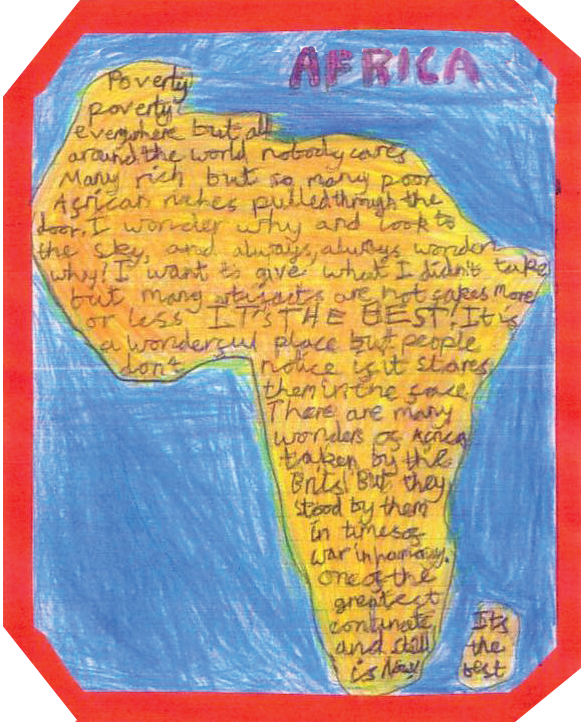 AFRICA
Poverty
poverty
everywhere but all
around the world nobody cares
Many rich but so many poor
African riches pulled through the
door, I wonder why and look to
the sky, and always, always wonder
why! I want to give what I didn't take
but many artifacts are not fakes More
or less IT'S THE BEST! It is
a wonderful place but people
don't notice if it stares
them in the face
There are many
wonders of Africa
taken by the
Brits! But they
stood by them
in times of
war in harmony.
One of the
greatest
continate
and still
is Now!
Its
the
best